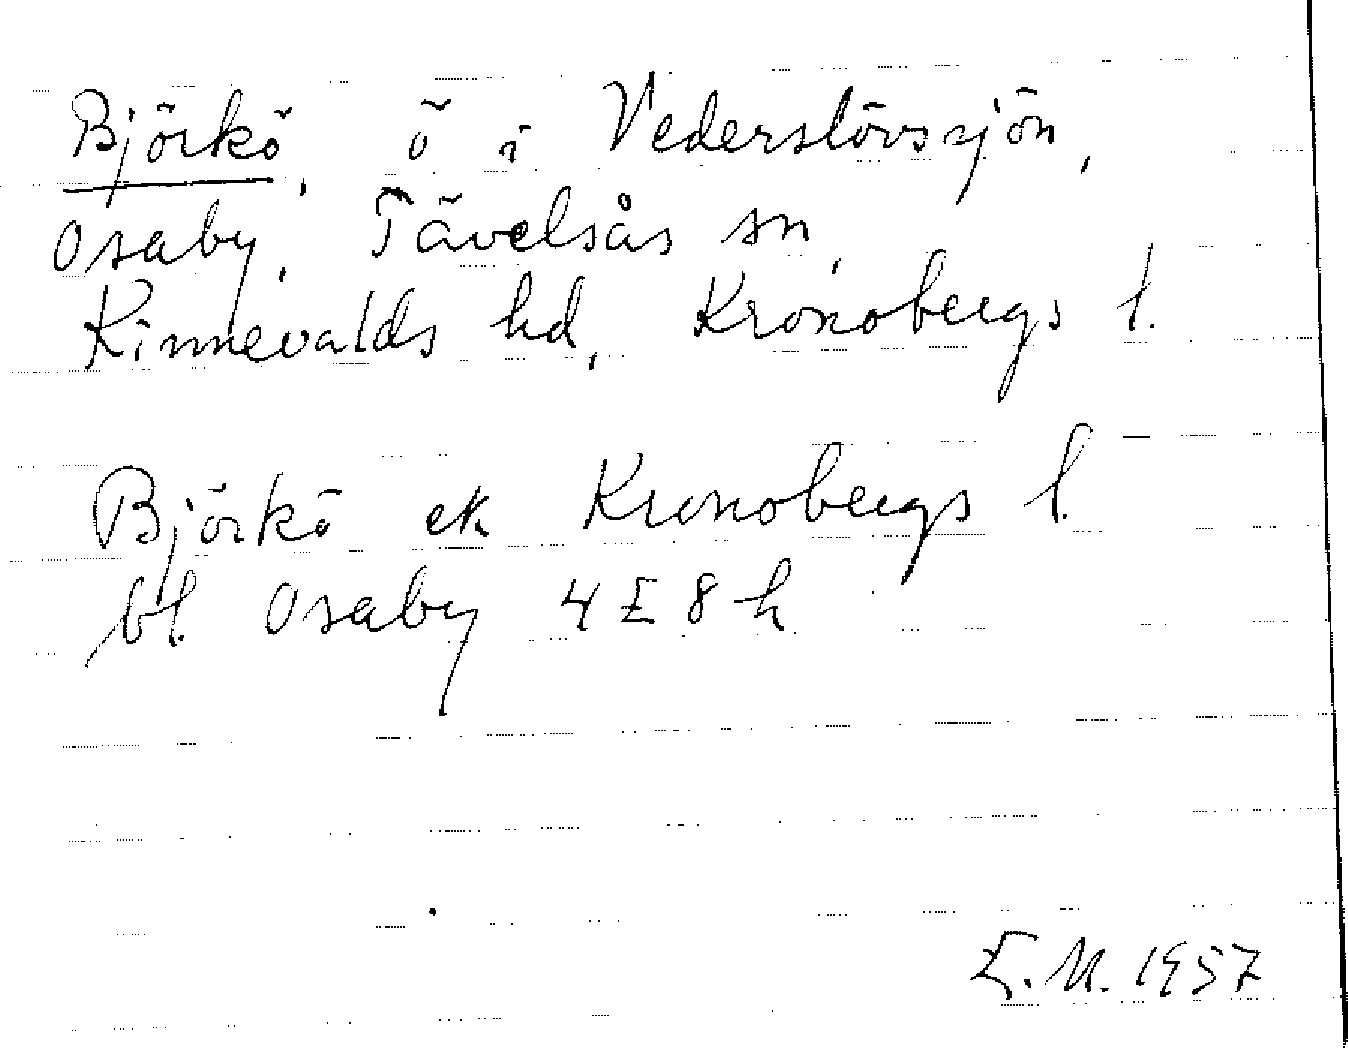 Björkö, ö i Vederslövssjön,
Osaby, Tävelsås sn,
Kinnevalds hd, Kronobergs l.
Björkö ek Kronobergs l.
bl. Osaby 4E8h
E.M. 1957